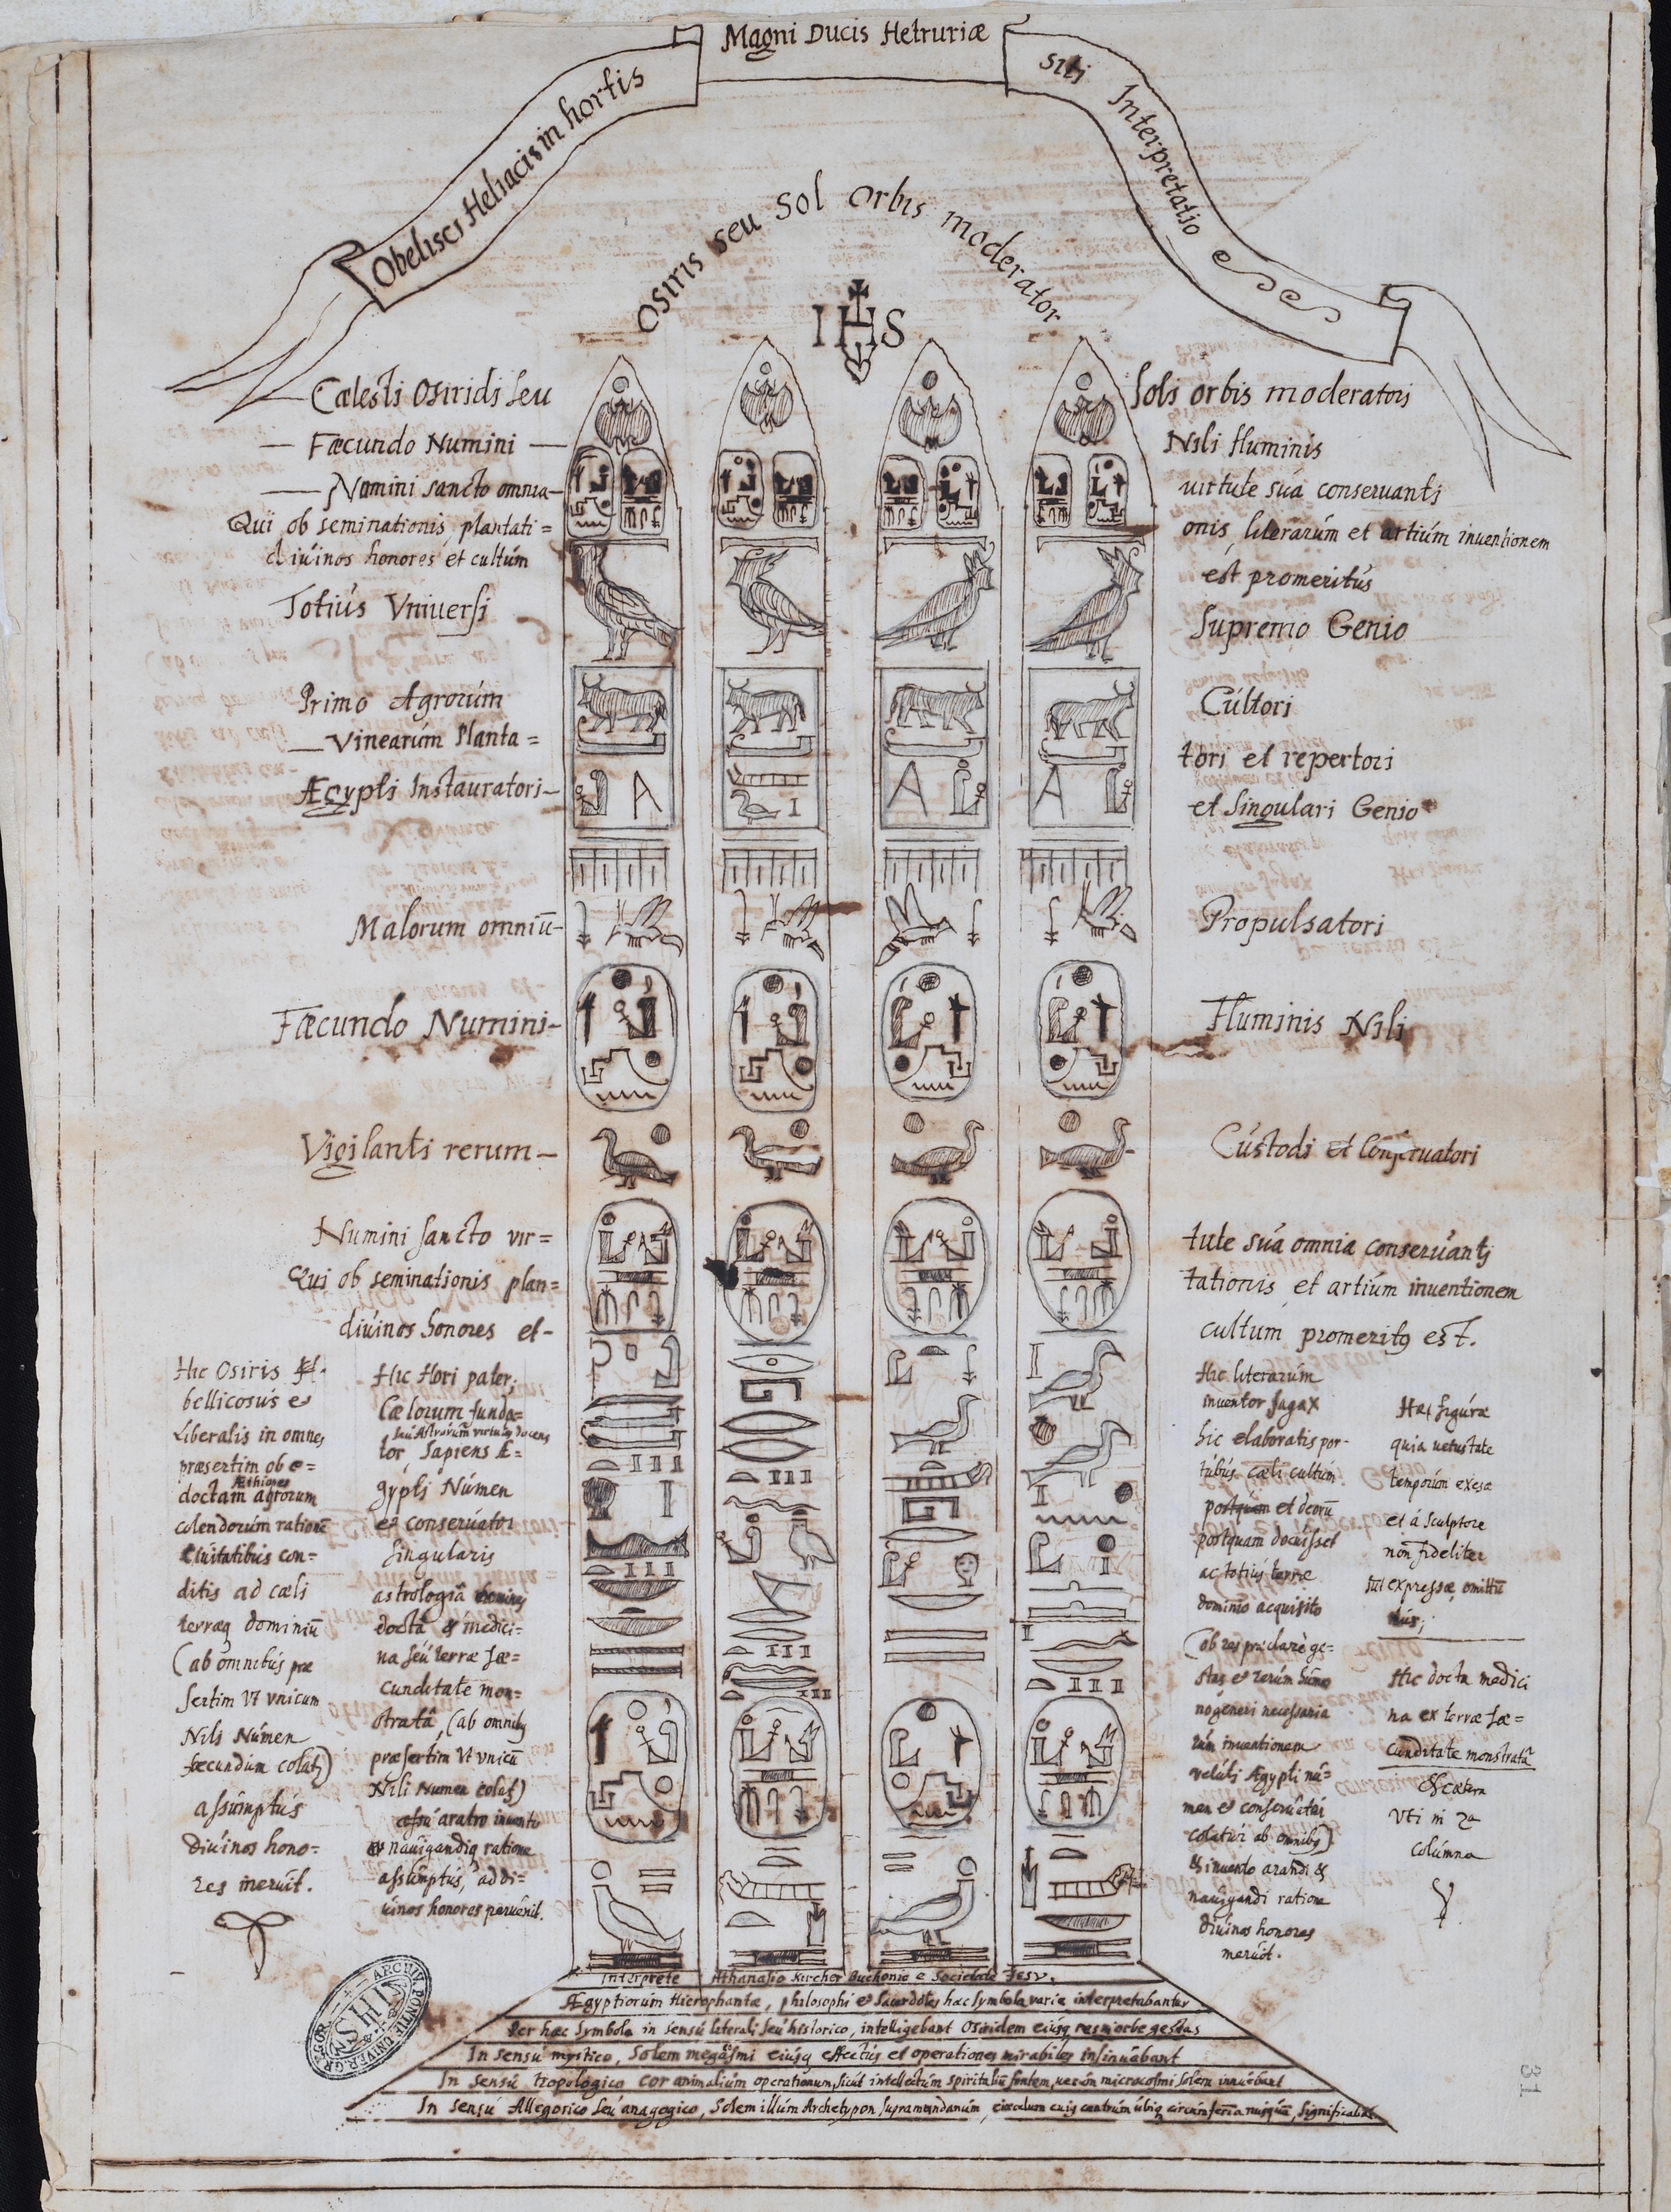 Obelisci Heliaci in hortis Magni Ducis Hetruriæ siti Interpretatio
Osiris seu Sol Orbis moderator
IHS
Cælesti Osiridi seu
Soli orbis moderatori
Fæcundo Numini
Nili fluminis
Numini sancto omnia
virtute sua conservanti
Qui ob seminationis, plantati=
onis, literarum et artium inventionem
divinos honores et cultum
est promeritus
Totius Vniversi
Supremo Genio
Primo Agrorum
Cultori
Vinearum Planta=
tori et repertori
Ægypti Instauratori
et singulari Genio
Malorum omniū
Propulsatori
Fæcundo Numini
Fluminis Nili
Vigilanti rerum
Custodi et Conservatori
Numini sancto vir=
tute sua omnia conservanti
Qui ob seminationis plan=
tationis, et artium inventionem
divinos honores et
cultum promeritꝰ est.
Hic Osiris
bellicosus et
Liberalis in omnes
præsertim ob e=
Æthiopes
doctam agrorum
colendorum rationē
Civitatibus con=
ditis ad cæli
terræq dominiū
(ab omnibus præ
sertim vt vnicum
Nili Númen
fœcundum colitꝰ)
assumptus
Divinos hono=
res meruit.
Hic Hori pater;
Cælorum funda=
seu Astrorum virtutes docens
tor, Sapiens Æ=
gypti Númen
et conservator
singularis
astrologiâ
docta & medici=
na seu terræ fæ=
cunditate mon=
strata, (ab omnibꝰ
præsertim vt vnicū
Nili Numen colitꝰ)
aratro invento
navigandiq ratione
assumptus, ad di=
vinos honores pervenit.
Hic literarum
inventor sagax
hic elaboratis por-
tubus cæli cultum
et deorū
postquam docuisset
ac totius terræ
dominio acquisito
(ob res præclare ge=
stas et rerum huma
no generi necessaria
rum inventionem
veluti Ægypti nu=
men et conservator
colatur ab omnibꝰ)
& invento arandi &
navigandi ratione
divinos honores
meruit.
Hæ figuræ
quia vetustate
temporum exesæ
et á sculptore
non fideliter
expressæ omittū
tur;
Hic docta medici
na ex terræ fæ=
cunditate monstratâ
& cætera
vti in 2a
columna
Interprete Athanasio Kircher Buchonio e Societate Iesu.
Ægyptiorum Hierophantæ, philosophi et Sacerdotes hæc symbola varie interpretabantur
Per hæc Symbola in sensu literali seu historico, intelligebant Osiridem eiusq res in orbe gestas
In sensu mystico, Solem megacosmi eiusq effectus et operationes mirabiles insinuabant
In sensu tropologico cor animalium operationum, sicut intellectum spiritualiū fontem, verum microcosmi solem innuebant
In sensu Allegorico seu anagogico, Solem illum Archetypon supramundanum, circulum cuiꝰ centrum ubiq circumferētia nusquā, significabāt
ARCHIV. PONTIF. UNIVER. GREGOR.
IHS
31